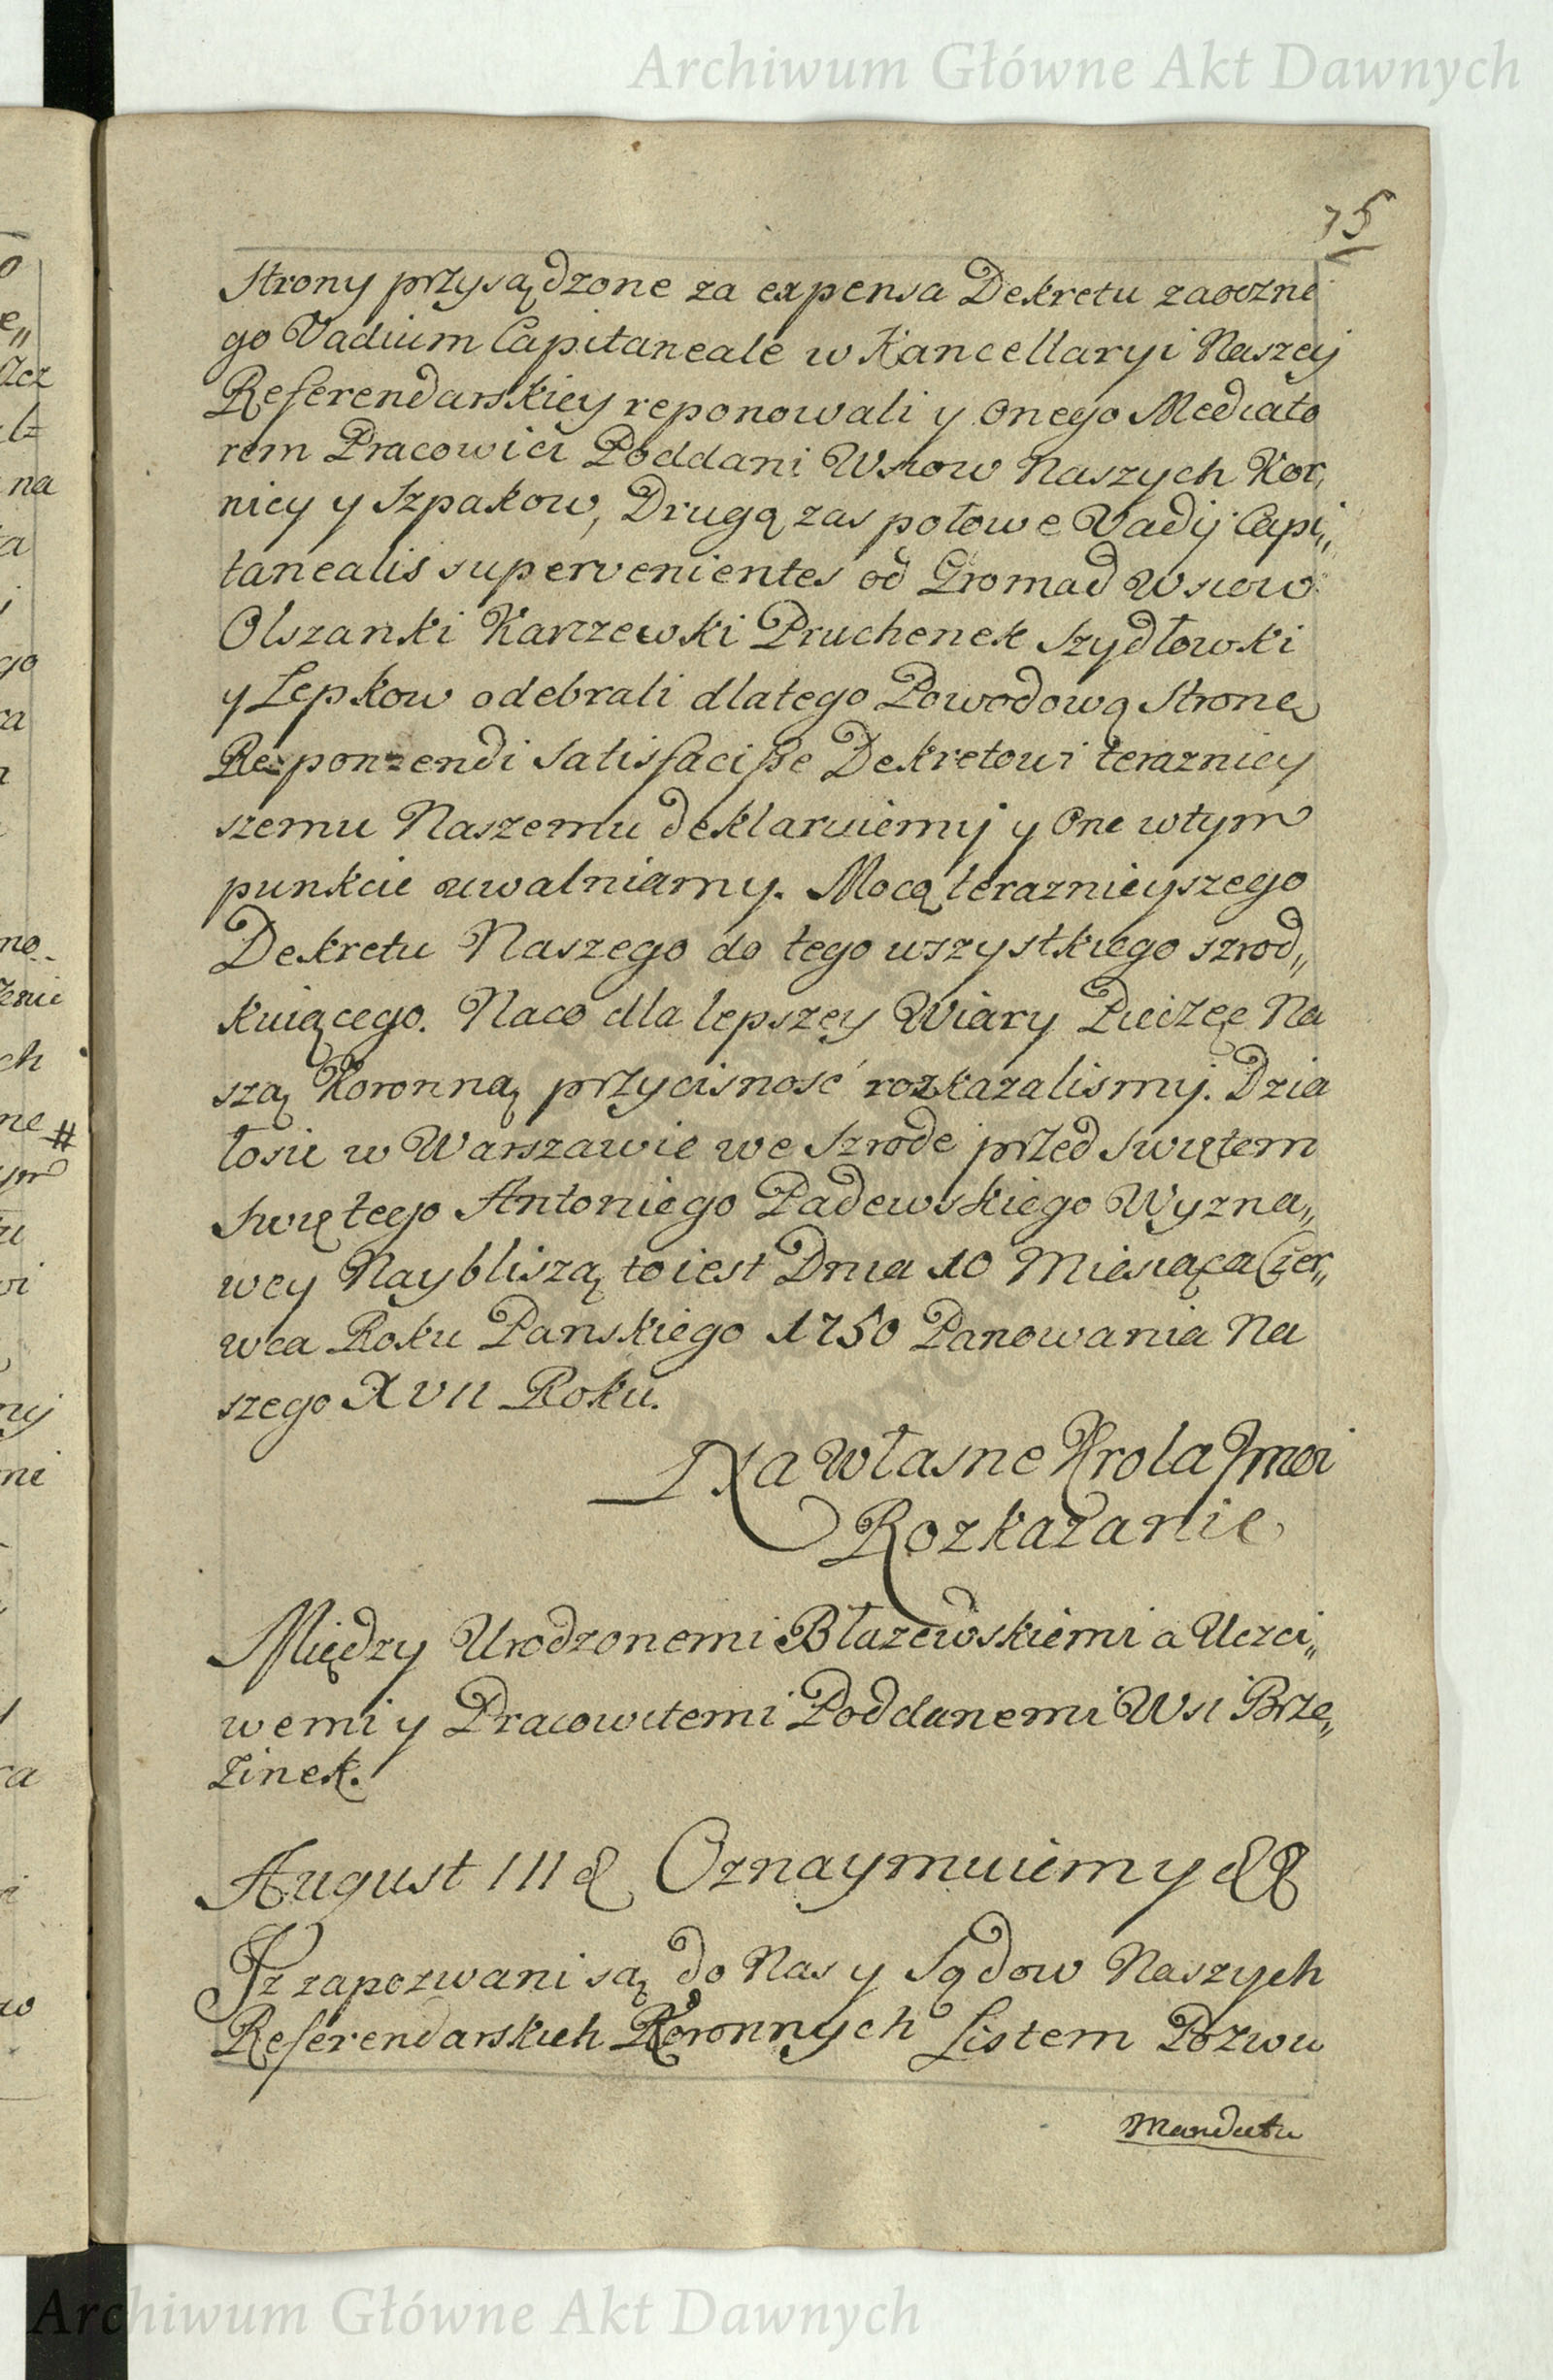 Archiwum Główne Akt Dawnych
75
Strony przysądzone za expensa Dekretu zaoczne
go Vadium Capitaneale w Kancellaryi Naszej
Referendarskiey reponowali y onego Mediato
rem Pracowici Poddani Wsiow Naszych Kor,
nicy y Szpakow, Drugą zas połowe Vadij Capi„
tanealis supervenientes od Gromad Wsiow
Olszanki Karczewki Pruchenek Szydłowki
y Łepkow odebrali dlatego Powodową Strone
Responzendi Satisfacisse Dekretowi terazniey
szemu Naszemu deklaruiemy y One wtym
punkcie uwalniamy. Mocą teraznieyszego
Dekretu Naszego do tego wszystkiego szrod„
kuiącego. Naco dla lepszey Wiary Pieczęc Na
szą Koronną przycisność rozkazalismy. Dzia
łosie w Warszawie we Szrode przed Swiętem
Swiętego Antoniego Padewskiego Wyzna„
wcy Naybliszą to iest Dnia 10 Miesiąca Czer„
wca Roku Panskiego 1750 Panowania Na
szego XVII Roku.
Na Własne Krola Jmci
Rozkazanie
Między Urodzonemi Błazewskiemi a Uczci„
wemi y Pracowitemi Poddanemi Wsi Brze„
zinek.
August III & Oznaymuiemy &&
Iz zapozwani są do Nas y Sądow Naszych
Referendarskich Koronnych Listem Pozwu
Mandatu
Archiwum Główne Akt Dawnych